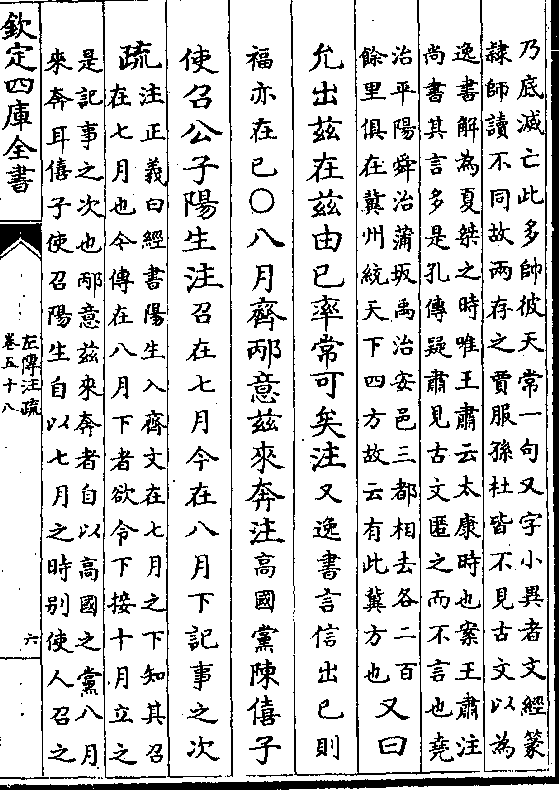 乃底滅亡此多帥彼天常一句又字小異者文經篆
隸師讀不同故兩存之賈服孫杜皆不見古文以為
逸書解為夏桀之時唯王肅云太康時也案王肅注
尚書其言多是孔傳疑肅見古文匿之而不言也堯
治平陽舜治蒲坂禹治安邑三都相去各二百
餘里俱在冀州統天下四方故云有此冀方也
又曰
允出茲在茲由已率常可矣注
又逸書言信出已則
福亦在已○八月齊邴意茲來奔注
高國黨陳僖子
使召公子陽生注
召在七月今在八月下記事之次
疏
注正義曰經書陽生入齊文在七月之下知其召
在七月也今傳在八月下者欲令下接十月立之
是記事之次也邴意茲來奔者自以高國之黨八月
來奔耳僖子使召陽生自以七月之時别使人召之
欽定四庫全書
左傳注疏
卷五十八
六